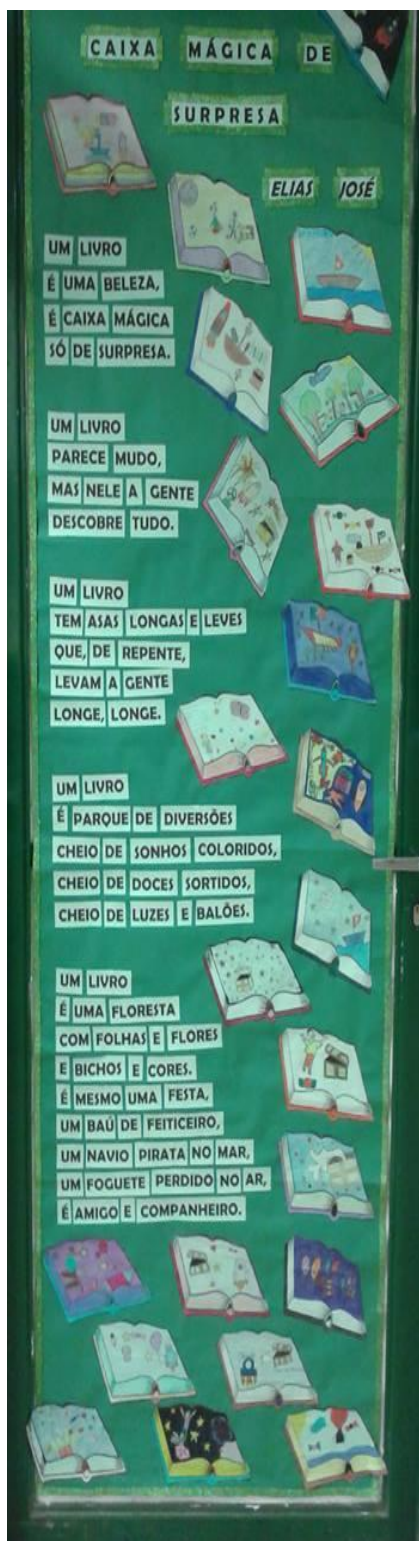 CAIXA MÁGICA DE
SURPRESA
ELIAS JOSÉ
UM LIVRO
É UMA BELEZA,
É CAIXA MÁGICA
SÓ DE SURPRESA.
UM LIVRO
PARECE MUDO,
MAS NELE A GENTE
DESCOBRE TUDO.
UM LIVRO
TEM ASAS LONGAS E LEVES
QUE, DE REPENTE,
LEVAM A GENTE
LONGE, LONGE.
UM LIVRO
É PARQUE DE DIVERSÕES
CHEIO DE SONHOS COLORIDOS,
CHEIO DE DOCES SORTIDOS,
CHEIO DE LUZES E BALÕES.
UM LIVRO
É UMA FLORESTA
COM FOLHAS E FLORES
E BICHOS E CORES.
É MESMO UMA FESTA,
UM BAÚ DE FEITICEIRO,
UM NAVIO PIRATA NO MAR,
UM FOGUETE PERDIDO NO AR,
É AMIGO E COMPANHEIRO.